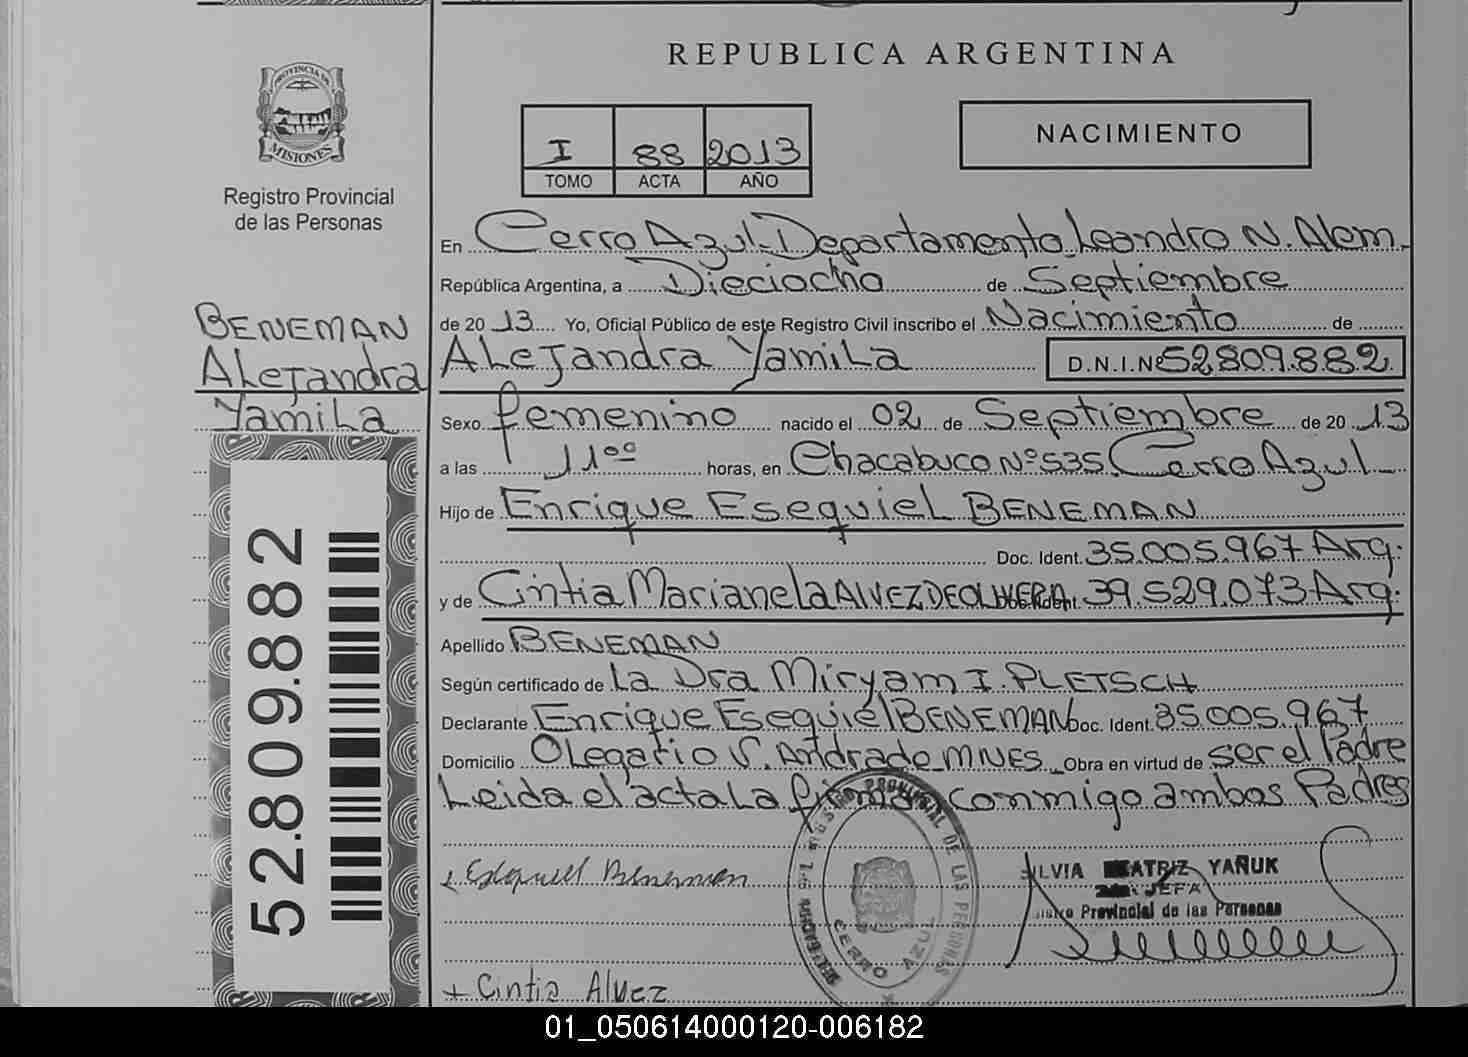 REPUBLICA ARGENTINA
PROVINCIA DE
MISIONES
Registro Provincial
de las Personas
I 88 2013
TOMO ACTA AÑO
NACIMIENTO
En Cerro Azul-Departamento Leandro N. Alem.
República Argentina, a Dieciocho de Septiembre
de 20 13 Yo, Oficial Público de este Registro Civil inscribo el Nacimiento de
ALeJandra YamiLa D.N.I.Nº 52.809.882.
BENEMAN
ALeJandra
YamiLa
52.809.882
Sexo femenino nacido el 02 de Septiembre de 20 13
a las 11⁰⁰ horas, en Chacabuco Nº535 Cerro Azul
Hijo de Enrique EsequieL BENEMAN
Doc. Ident. 35.005.967 Arg.
y de Cintia Marianela ALVEZ DE OLIVERA Doc. Ident. 39.529.073 Arg.
Apellido BENEMAN
Según certificado de La Dra Miryam I. PLETSCH
Declarante Enrique Esequiel BENEMAN Doc. Ident. 35.005.967
Domicilio OLegario V. Andrade MNES Obra en virtud de ser el Padre
Leida el acta La firma conmigo ambos Padres
Esequiel Beneman
REGISTRO PROVINCIAL DE LAS PERSONAS
CERRO AZUL
BEATRIZ YAÑUK
JEFA
Provincial de las Personas
+ Cintia Alvez
01_050614000120-006182